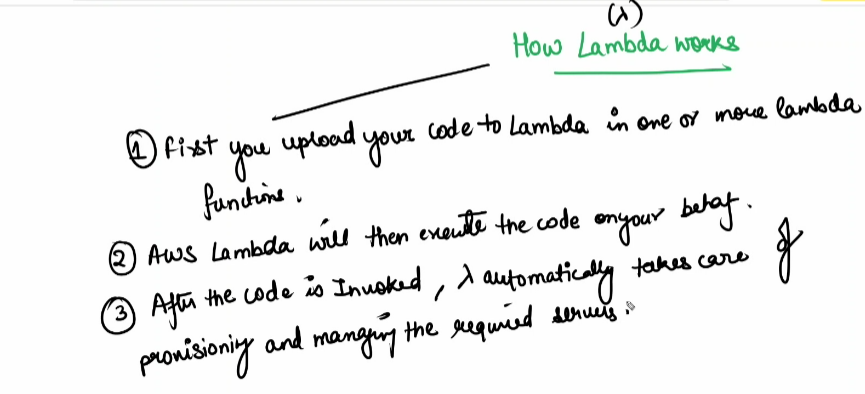 (λ)
How Lambda works
① first you upload your code to Lambda in one or more lambda
functions.
② AWS Lambda will then execute the code on your behaf.
③ After the code is Invoked, λ automatically takes care of
provisioning and managing the required servers.